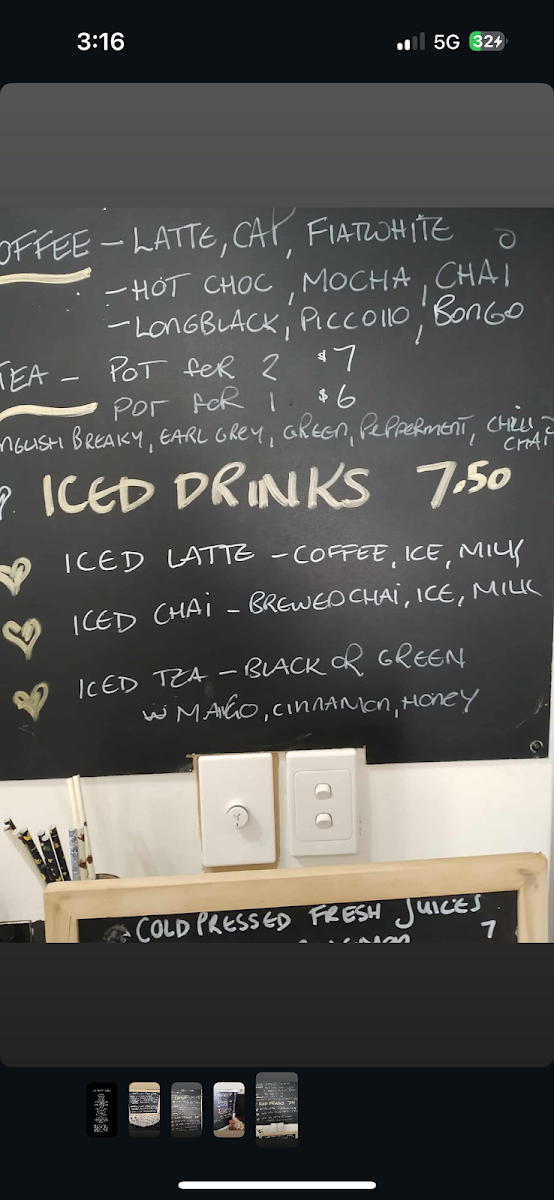 3:16 5G 32
OFFEE - LATTE, CAP, FLATWHITE
- HOT CHOC, MOCHA, CHAI
- LONGBLACK, PICCOLLO, BONGO
TEA - POT FOR 2 $7
POT FOR 1 $6
NGLISH BREAKY, EARL GREY, GREEN, PEPPERMENT, CHILLI
CHAI
ICED DRINKS 7.50
ICED LATTE - COFFEE, ICE, MILK
ICED CHAI - BREWED CHAI, ICE, MILK
ICED TEA - BLACK OR GREEN
W MANGO, CINNAMON, HONEY
COLD PRESSED FRESH JUICES
7